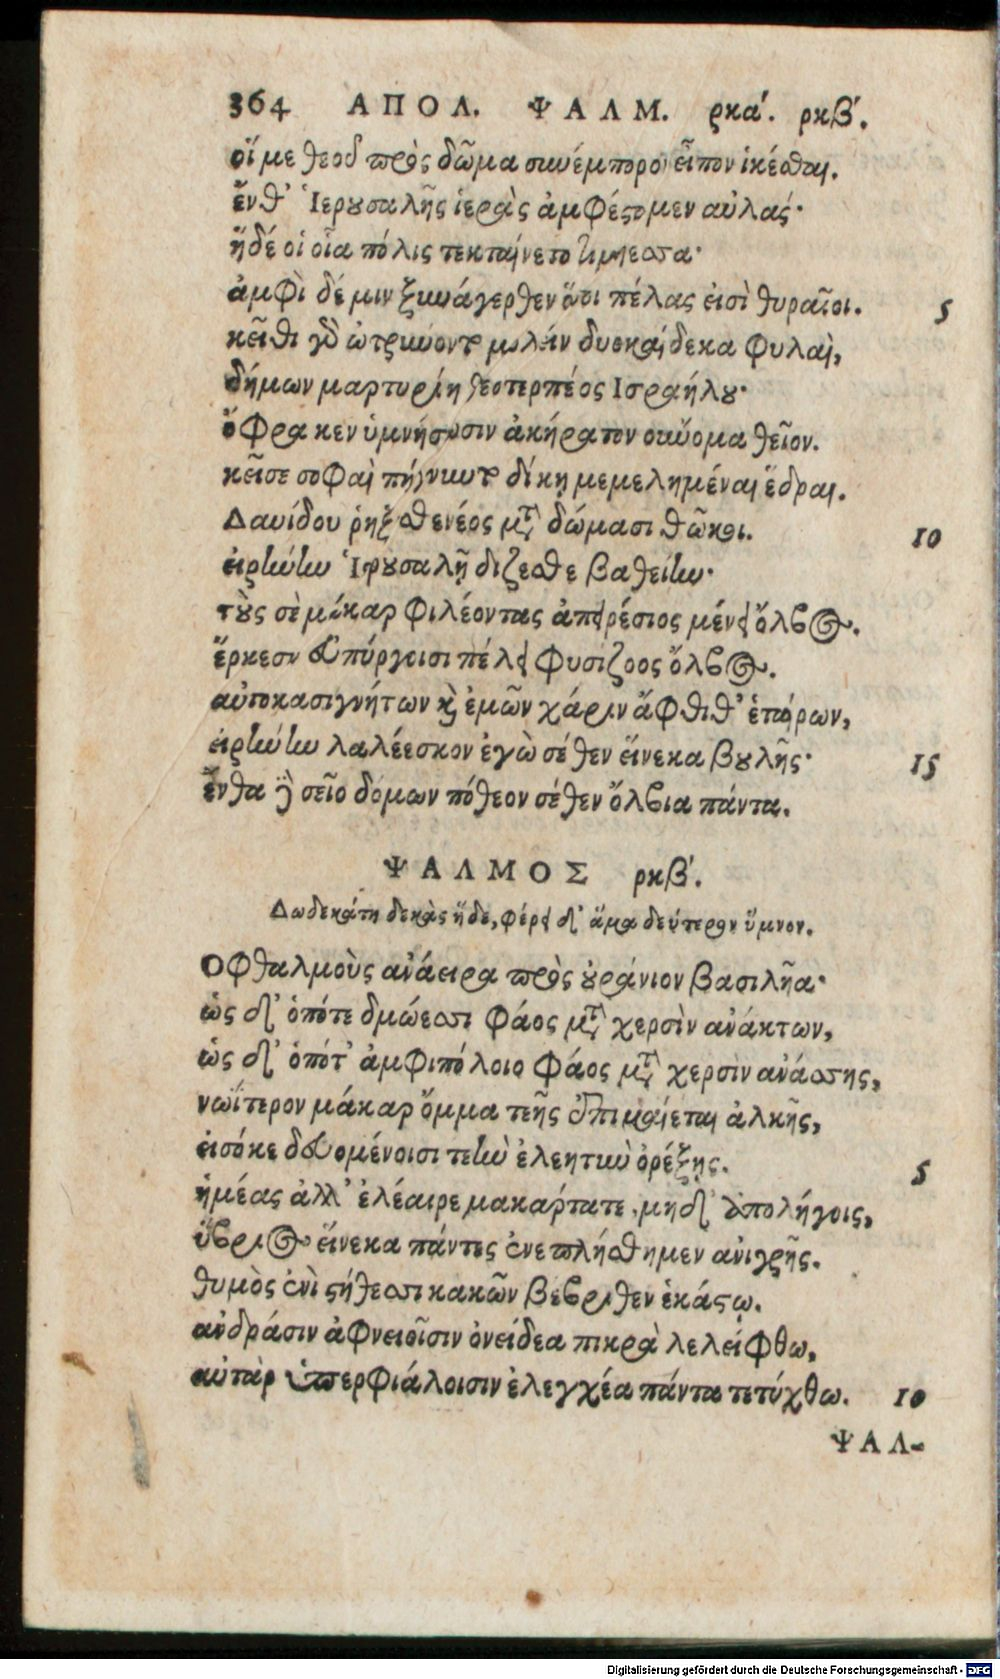 364 ΑΠΟΛ. ΨΑΛΜ. ρκα΄. ρκβ΄.
οἵ με θεοῦ πρὸς δῶμα συνέμποροι εἶπον ἱκέσθαι.
ἔνθ᾽ Ἱερουσαλῆς ἱερὰς ἀμφέσομεν αὐλάς·
ἥδέ οἱ οἷα πόλις τεκταίνετο
ἀμφὶ δέ μιν ξυνάγερθεν ὅσοι πέλας εἰσὶ θυραῖοι. 5
κεῖθι γὰρ ὠτρύνοντο μολεῖν δυοκαίδεκα φυλαὶ,
δήμων μαρτυρίη θεοτερπέος Ισραήλου·
ὄφρα κεν ὑμνήσωσιν ἀκήρατον οὔνομα θεῖον.
κεῖσε σοφαὶ πήγνυντο δίκῃ μεμελημέναι ἕδραι.
Δαυίδου ῥηξισθενέος μετὰ δώμασι θῶκοι. 10
εἰρήνην Ἱερουσαλῇ δίζεσθε βαθείην·
τοὺς σὲ μάκαρ φιλέοντας ἀπειρέσιος μένει ὄλβος.
ἕρκεσιν ἐν πύργοισι πέλει φυσίζοος ὄλβος.
αὐτοκασιγνήτων καὶ ἐμῶν χάριν ἄφθιθ᾽ ἑταίρων,
εἰρήνην λαλέεσκον ἐγὼ σέθεν εἵνεκα βουλῆς· 15
ἔνθα γὰρ σεῖο δόμων πόθεον σέθεν ὄλβια πάντα.
ΨΑΛΜΟΣ ρκβ΄.
Δωδεκάτη δεκὰς ἥδε, φέρει δ᾽ ἅμα δεύτερον ὕμνον.
Οφθαλμοὺς ἀνάειρα πρὸς οὐράνιον βασιλῆα·
ὡς δ᾽ ὁπότε δμώεσσι φάος μετὰ χερσὶν ἀνάκτων,
ὡς δ᾽ ὁπότ᾽ ἀμφιπόλοιο φάος μετὰ χερσὶν ἀνάσσης,
νωΐτερον μάκαρ ὄμμα τεῆς ἐπιμαίεται ἀλκῆς,
εἰσόκε δευομένοισι τεὴν ἐλεητὺν ὀρέξῃς. 5
ἡμέας ἀλλ᾽ ἐλέαιρε μακάρτατε, μηδ᾽ ἀπολήγοις,
ὕβριος εἵνεκα πάντες ἐνεπλήσθημεν ἀνιγρῆς.
θυμὸς ἐνὶ στήθεσσι κακῶν βέβριθεν ἑκάστῳ.
ἀνδράσιν ἀφνειοῖσιν ὀνείδεα πικρὰ λελείφθω,
αὐτὰρ ὑπερφιάλοισιν ἐλεγχέα πάντα τετύχθω. 10
ΨΑΛ-
Digitalisierung gefördert durch die Deutsche Forschungsgemeinschaft - DFG